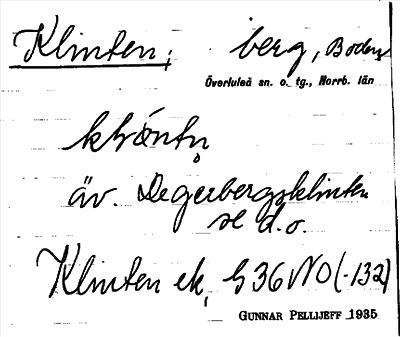 Klinten; berg, Bodens
Överluleå sn. o. tg., Norrb. län
äv. Degerbergsklinten
se d.o.
Klinten ek, G 36 NO (-132)
GUNNAR PELLIJEFF 1935